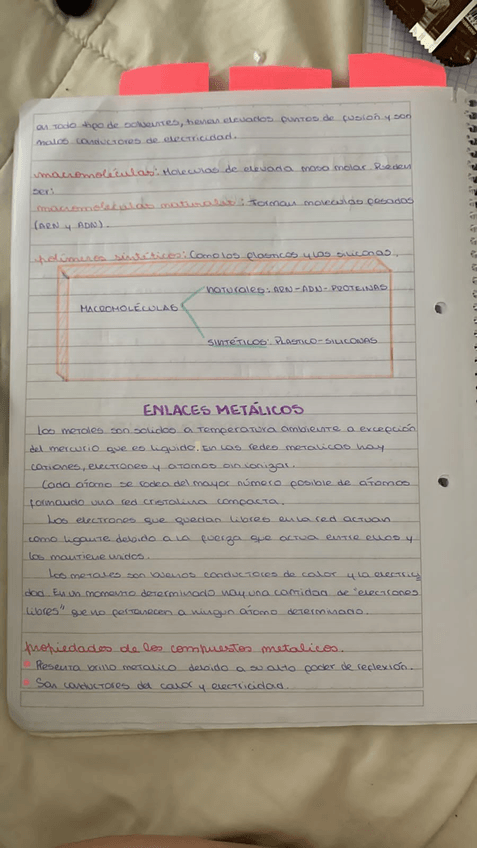 en todo tipo de solventes, tienen elevados puntos de fusión y son
malos conductores de electricidad.
macromoléculas: Moléculas de elevada masa molar. Pueden
ser:
macromoléculas naturales: Forman moléculas pesadas
(ARN y ADN).
polímeros sintéticos: Como los plasticos y las siliconas.
MACROMOLÉCULAS
naturales: ARN-ADN-PROTEINAS
SINTÉTICOS: PLASTICO-SILICONAS
ENLACES METÁLICOS
Los metales son solidos a temperatura ambiente a excepción
del mercurio que es liquido. En las redes metalicas hay
cationes, electrones y atomos sin ionizar.
Cada átomo se rodea del mayor número posible de átomos
formando una red cristalina compacta.
Los electrones que quedan libres en la red actuan
como ligante debido a la fuerza que actua entre ellos y
los mantiene unidos.
Los metales son buenos conductores de calor y la electrici
dad. En un momento determinado hay una cantidad de "electrones
libres" que no pertenecen a ningun átomo determinado.
propiedades de los compuestos metalicos.
Presenta brillo metalico debido a su alto poder de reflexión.
Son conductores del calor y electricidad.